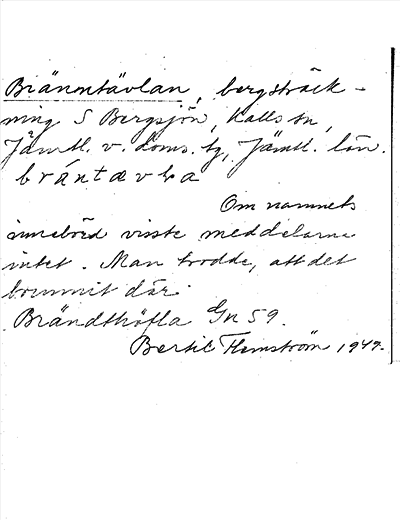 Bränntävlan, bergsträck-
ning S Bergsjön, Kalls sn,
Jämtl. v. doms. tg, Jämtl. län.
bräntævḷa
Om namnets
innebörd visste meddelarne
intet. Man trodde, att det
brunnit där.
Brändthöfla Gn 59.
Bertil Flemström 1949.